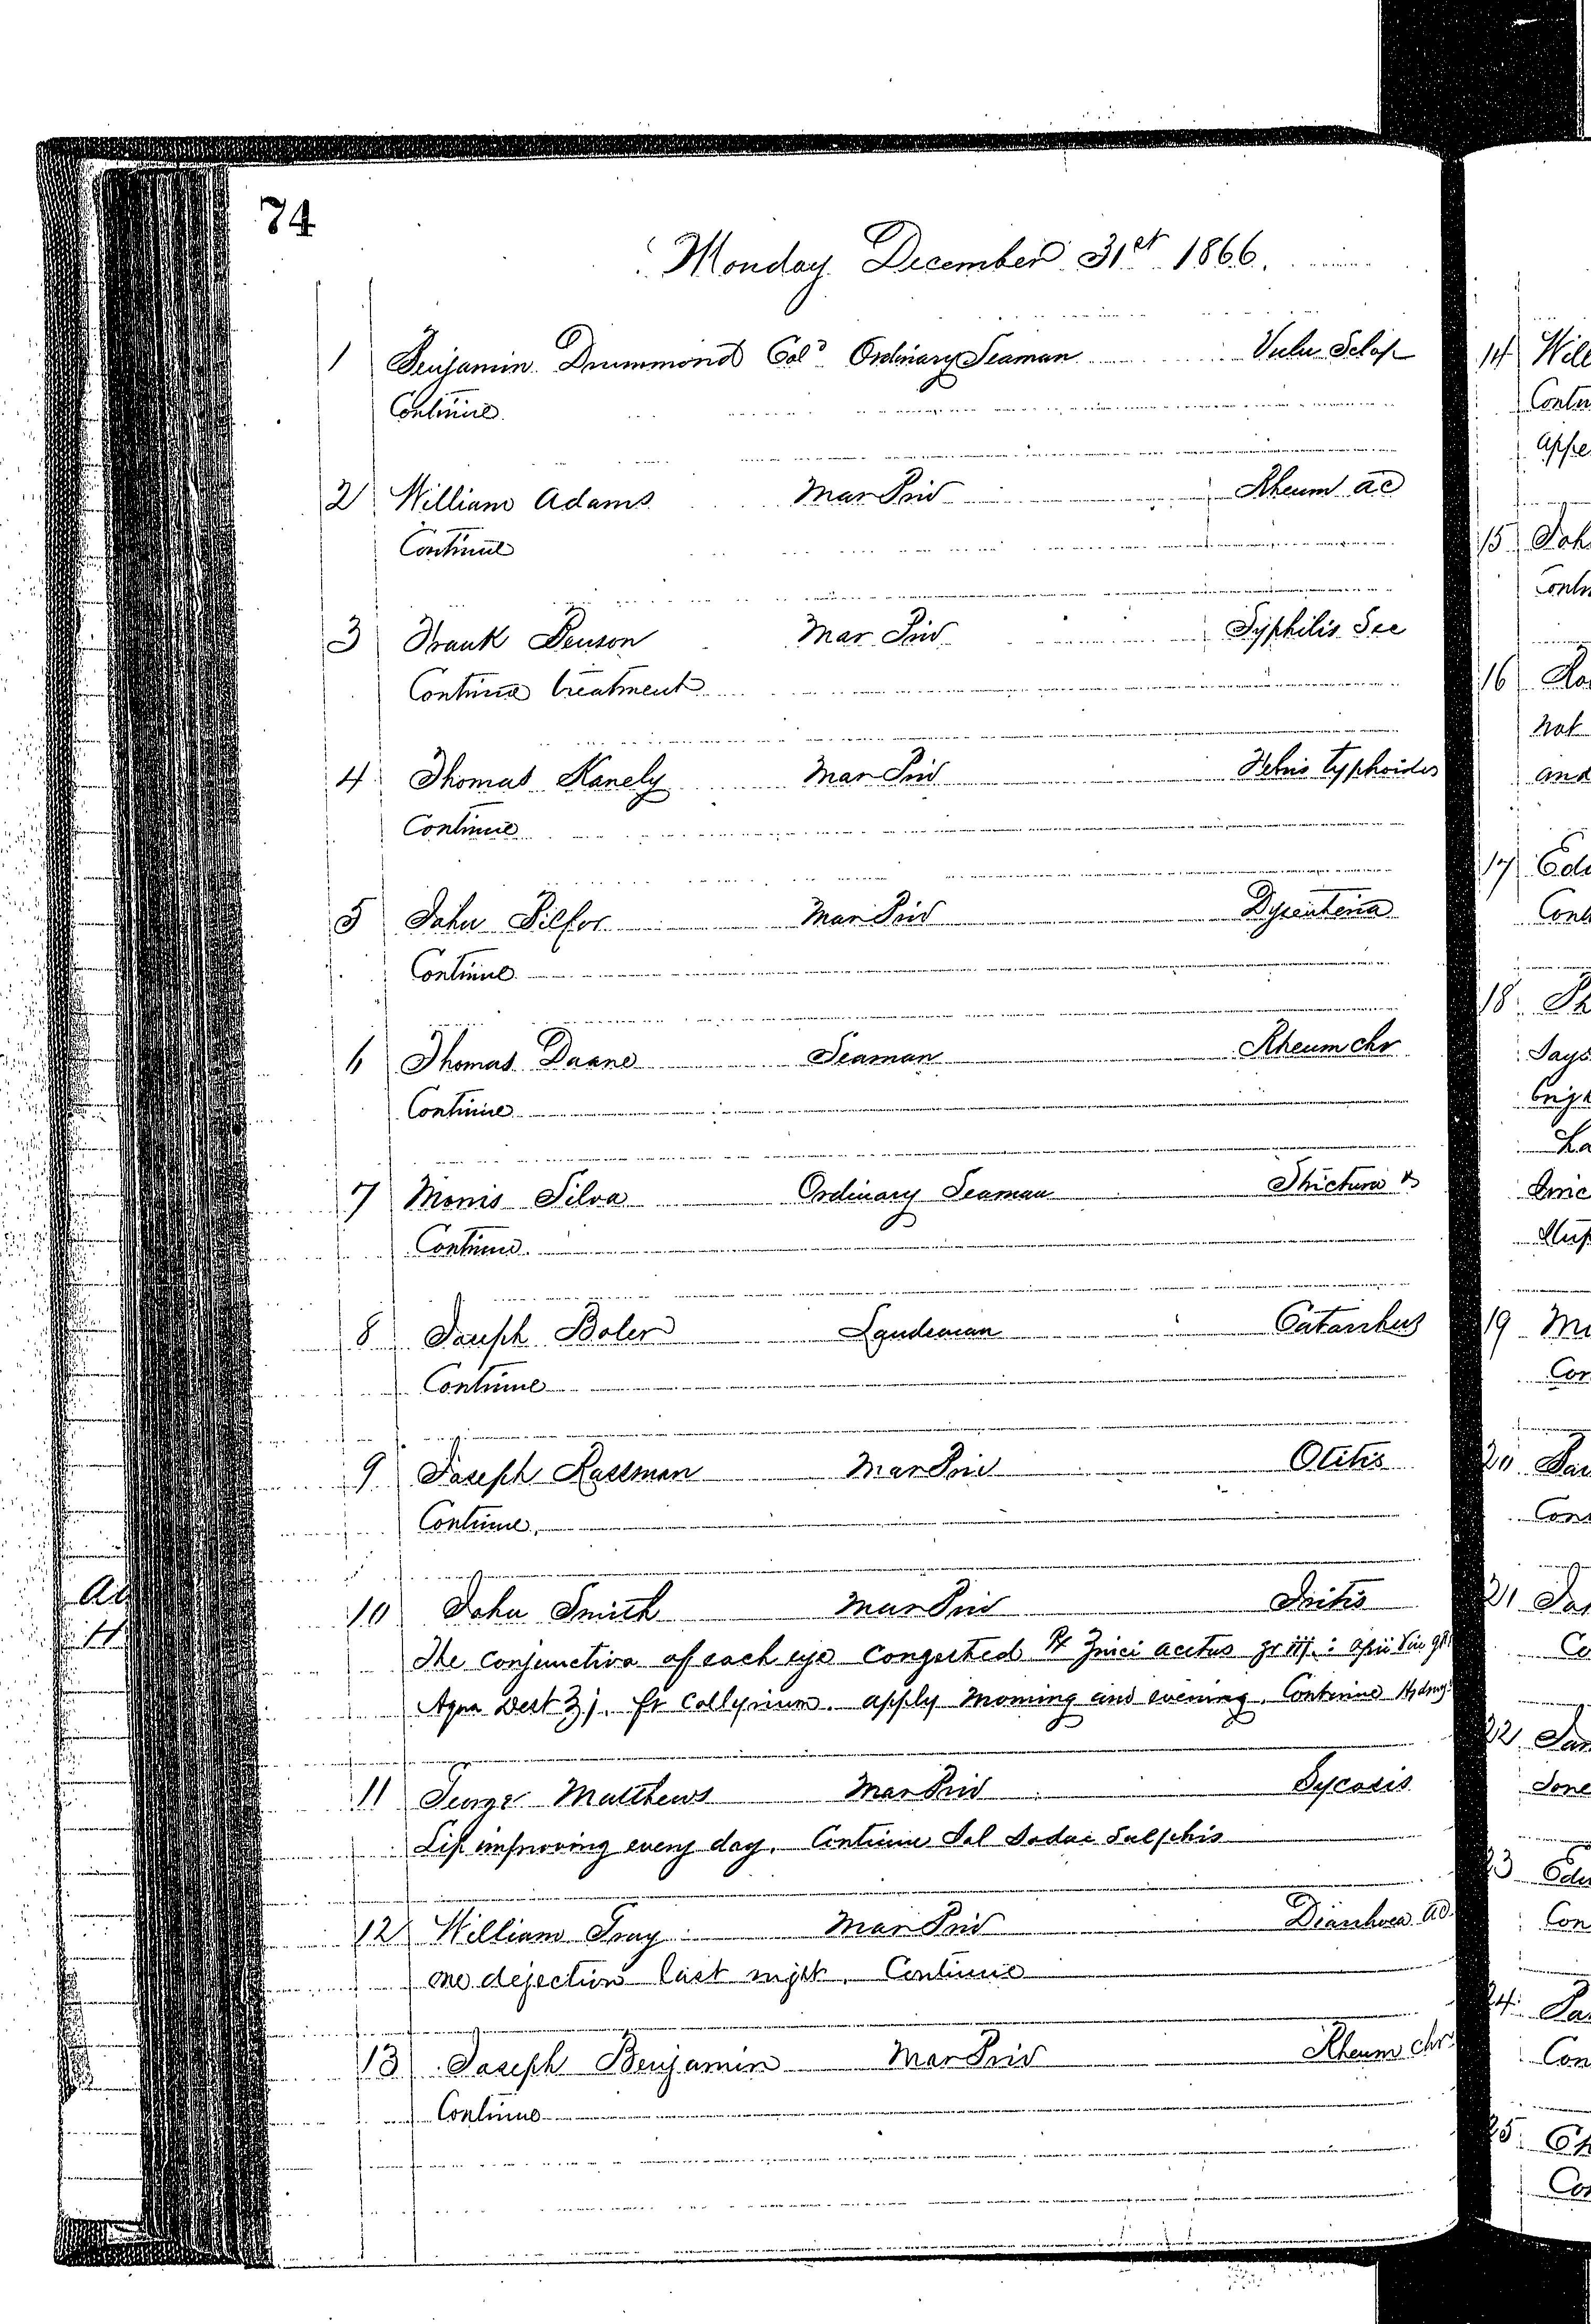 74
Monday December 31st 1866.
1 Benjamin Drummond Cold Ordinary Seaman Vuln Sclop
Continue
2 William Adams Mar Priv Rheum ac
Continue
3 Frank Benson Mar Priv Syphilis Sec
Continue treatment
4 Thomas Kanely Mar Priv Febris typhoides
Continue
5 John Pilfor Mar Priv Dysenteria
Continue
6 Thomas Duane Seaman Rheum chr
Continue
7 Morris Silva Ordinary Seaman Strictura
Continue
8 Joseph Boler Landsman Catarrhus
Continue
9 Joseph Rassman Mar Priv Otitis
Continue
10 John Smith Mar Priv Iritis
The conjunctiva of each eye congested ℞ Zinci acetas gr iij: Opii Vin
Aqua Dest ℥j. ft Collyrium. apply morning and evening. Continue Hydrarg
11 George Matthews Mar Priv Sycosis
Lip improving every day. Continue Sol Sodae Sulphis
12 William Gray Mar Priv Diarrhoea ac
one dejection last night. Continue
13 Joseph Benjamin Mar Priv Rheum chr
Continue
14 Will
15 Joh
16
not
and
17 Edw
18
Says
19
20
21
22
23 Edw
Con
24
Con
25